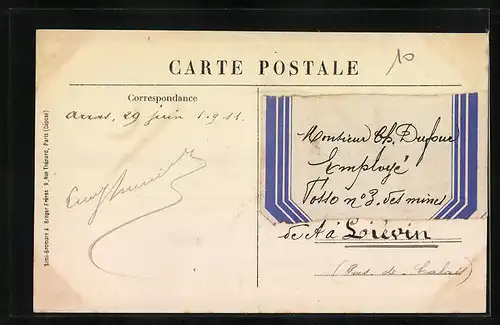 10
CARTE POSTALE
Correspondance
Arras, 29 juin 1.9.11.
Monsieur Ch.
Employé
Fosse n° 3. des mines
de à Loiévin
(Pas-de-Calais)
Simi-Bromure A. Breger Frères 9, Rue Thénard, Paris (Déposé)